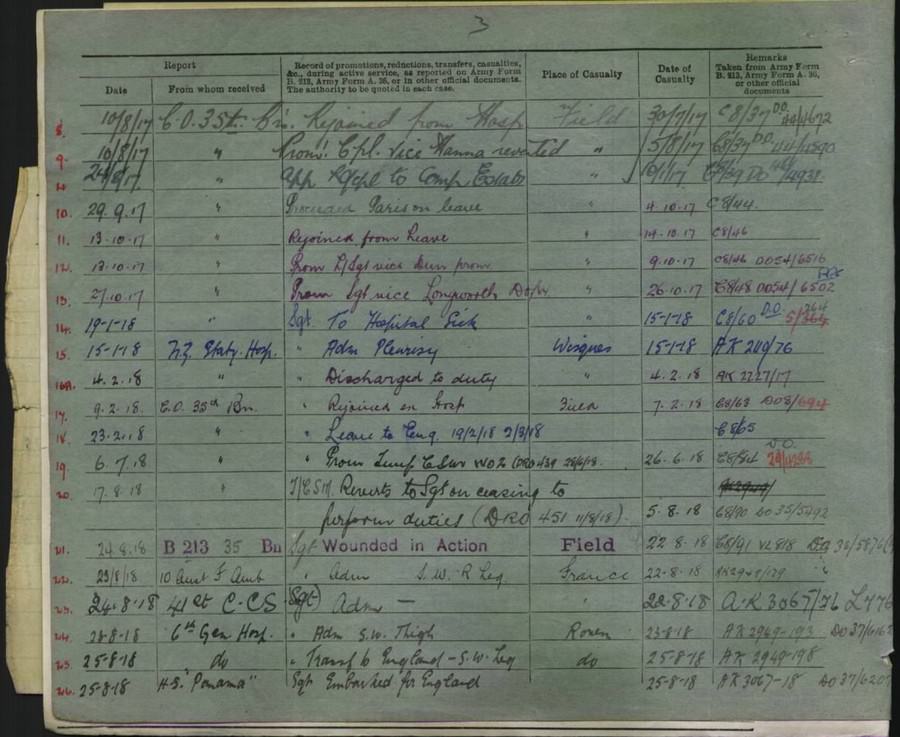 3
Report
Date
From whom received
Record of promotions, reductions, transfers, casualties,
&c., during active service, as reported on Army Form
B. 213, Army Form A. 36, or in other official documents.
The authority to be quoted in each case.
Place of Casualty
Date of
Casualty
Remarks
Taken from Army Form
B. 213, Army Form A. 36,
or other official
documents
8. 10/8/17 C.O. 35th Bn. Rejoined from Hosp Field 30/7/17 C8/37 DO
9. 10/8/17 " Prom! Cpl. vice Hanna reverted " 5/8/17 C8/37 DO
" App to Comp. Estab " 10/1/17 C8/39 DO
10. 29.9.17 " Proceeded Paris on leave " 4.10.17 C8/44.
11. 13.10.17 " Rejoined from Leave " 14.10.17 C8/46
12. 13.10.17 " Prom L/Sgt vice prom. " 9.10.17 C8/46 DO54/6516
13. 27.10.17 " Prom Sgt vice Longworth " 26.10.17 C8/48 DO54/6502
14. 19-1-18 " Sgt To Hospital Sick " 15-1-18 C8/60 D.O. 5/364 264
15. 15-1-18 N.Z. Staty. Hosp. " Adm Pleurisy Wisques 15-1-18 AK 76
16A. 4.2.18 " " Discharged to duty " 4.2.18 AK 2227/17
17. 9.2.18. C.O. 35th Bn. " Rejoined ex Hosp Field 7.2.18 C8/63 DO8/694
18. 23.2.18 " " Leave to Eng. 19/2/18 5/3/18 C8/65
19. 6.7.18 " " Prom Temp CSM WO2 (DRO 439 28/6/18. 26.6.18 C8/84 D.O.
20. 17.8.18 " T/CSM. Reverts to Sgt on ceasing to
perform duties (DRO 451 11/8/18). 5.8.18 C8/90 DO35/5492
21. 24.8.18 B 213 35 Bn Sgt Wounded in Action Field 22.8.18 C8/91
22. 23/8/18 10 Aust F Amb " Adm S.W. R Leg. France 22-8-18
23. 24-8-18 41st C.C.S (Sgt) Adm — " 22-8-18 A.K 3067/26
24. 28-8-18 6th Gen Hosp. " Adm S.W. Thigh Rouen 23-8-18 AK 2969-193
25. 25-8-18 do " Transf to England - S.W. Leg do 25-8-18 AK 2949-198
26. 25-8-18 H.S. "Panama" Sgt Embarked for England 25-8-18 AK 3067-18